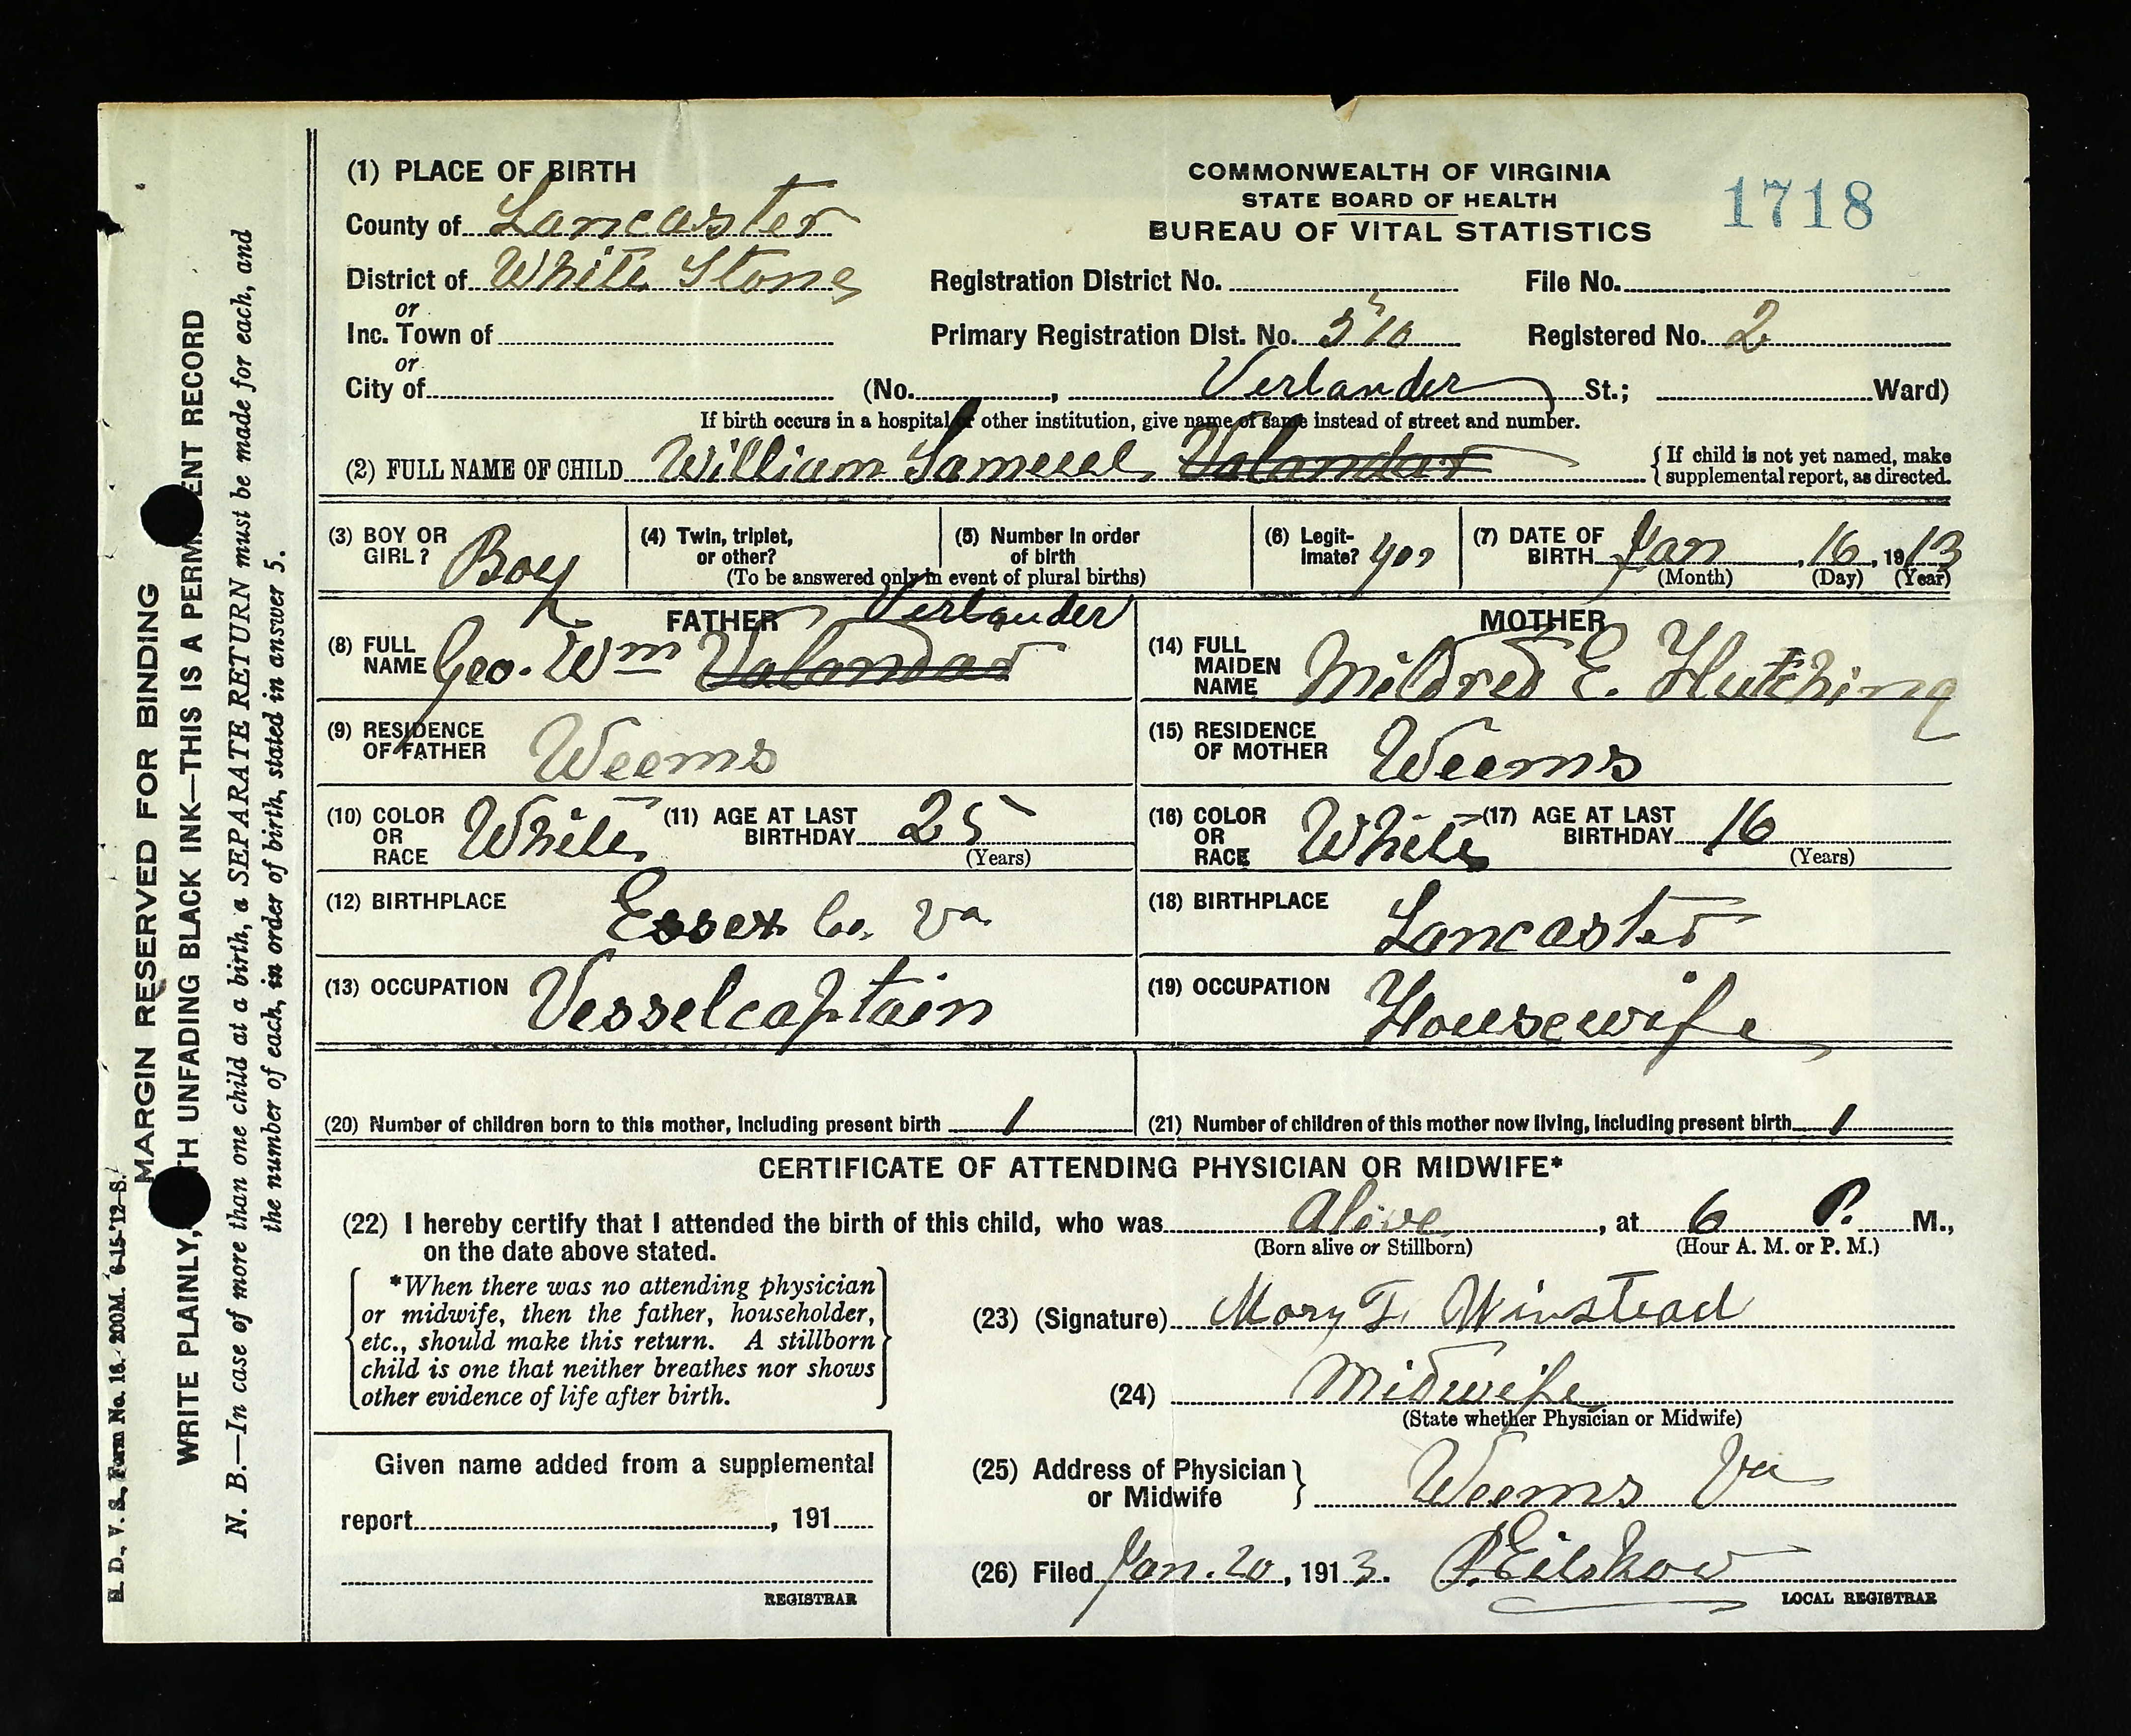 (1) PLACE OF BIRTH
COMMONWEALTH OF VIRGINIA
STATE BOARD OF HEALTH
BUREAU OF VITAL STATISTICS
1718
County of Lancaster
District of White Stone
Registration District No.
File No.
or
Inc. Town of
Primary Registration Dist. No. 510
Registered No. 2
or
City of (No. , Verlander St.; Ward)
If birth occurs in a hospital or other institution, give name of same instead of street and number.
(2) FULL NAME OF CHILD William Samuel Valandar
{ If child is not yet named, make
supplemental report, as directed.
(3) BOY OR
GIRL? Boy
(4) Twin, triplet,
or other?
(5) Number in order
of birth
(To be answered only in event of plural births)
(6) Legit-
imate? yes
(7) DATE OF
BIRTH Jan, 16, 1913
(Month) (Day) (Year)
FATHER
Verlander
(8) FULL
NAME Geo. Wm Valandar
(9) RESIDENCE
OF FATHER Weems
(10) COLOR
OR
RACE White
(11) AGE AT LAST
BIRTHDAY 25
(Years)
(12) BIRTHPLACE Essex Co. Va
(13) OCCUPATION Vesselcaptain
MOTHER
(14) FULL
MAIDEN
NAME Mildred E. Hutching
(15) RESIDENCE
OF MOTHER Weems
(16) COLOR
OR
RACE White
(17) AGE AT LAST
BIRTHDAY 16
(Years)
(18) BIRTHPLACE Lancaster
(19) OCCUPATION Housewife
(20) Number of children born to this mother, including present birth 1
(21) Number of children of this mother now living, including present birth 1
CERTIFICATE OF ATTENDING PHYSICIAN OR MIDWIFE*
(22) I hereby certify that I attended the birth of this child, who was Alive, at 6 P. M.,
(Born alive or Stillborn) (Hour A. M. or P. M.)
on the date above stated.
*When there was no attending physician
or midwife, then the father, householder,
etc., should make this return. A stillborn
child is one that neither breathes nor shows
other evidence of life after birth.
(23) (Signature) Mary F. Winstead
(24) Midwife
(State whether Physician or Midwife)
Given name added from a supplemental
report , 191
REGISTRAR
(25) Address of Physician
or Midwife } Weems Va
(26) Filed Jan. 20, 1913.
LOCAL REGISTRAR
MARGIN RESERVED FOR BINDING
WRITE PLAINLY, TH UNFADING BLACK INK—THIS IS A PERM ENT RECORD
N. B.—In case of more than one child at a birth, a SEPARATE RETURN must be made for each, and
the number of each, in order of birth, stated in answer 5.
D., V. S., Form No. 16. 200M. 6-15-'12-S.